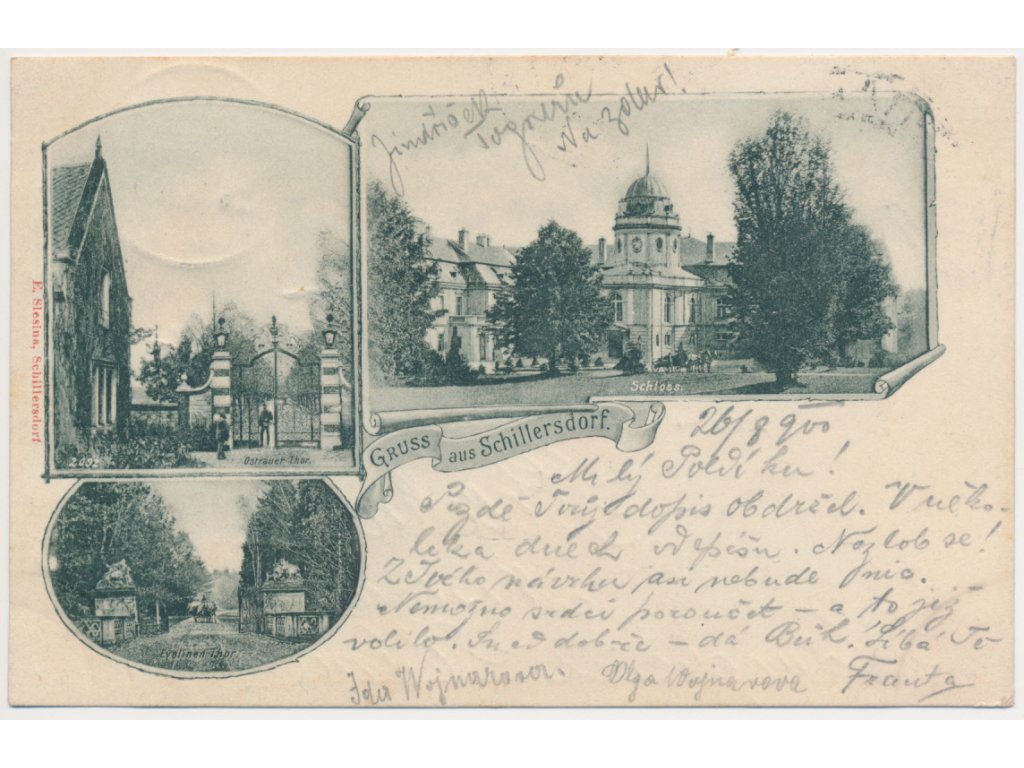 Jindříšek
Na zdar!
E. Slesina, Schillersdorf
2095
Ostrauer-Thor.
Schloss.
GRUSS aus Schillersdorf.
Evelinen-Thor.
26/8 900
Milý Poldíku!
Pozdě Tvůj dopis obdržel. V něko-
lika dnech odepíšu. Nezlob se!
Z Tvého návrhu asi nebude nic.
Nemožno srdci poroučet – a to již
volilo. Snad dobře – dá Bůh. Líbá Tě
Ida Wojnarova. Olga Wojnarova Franta